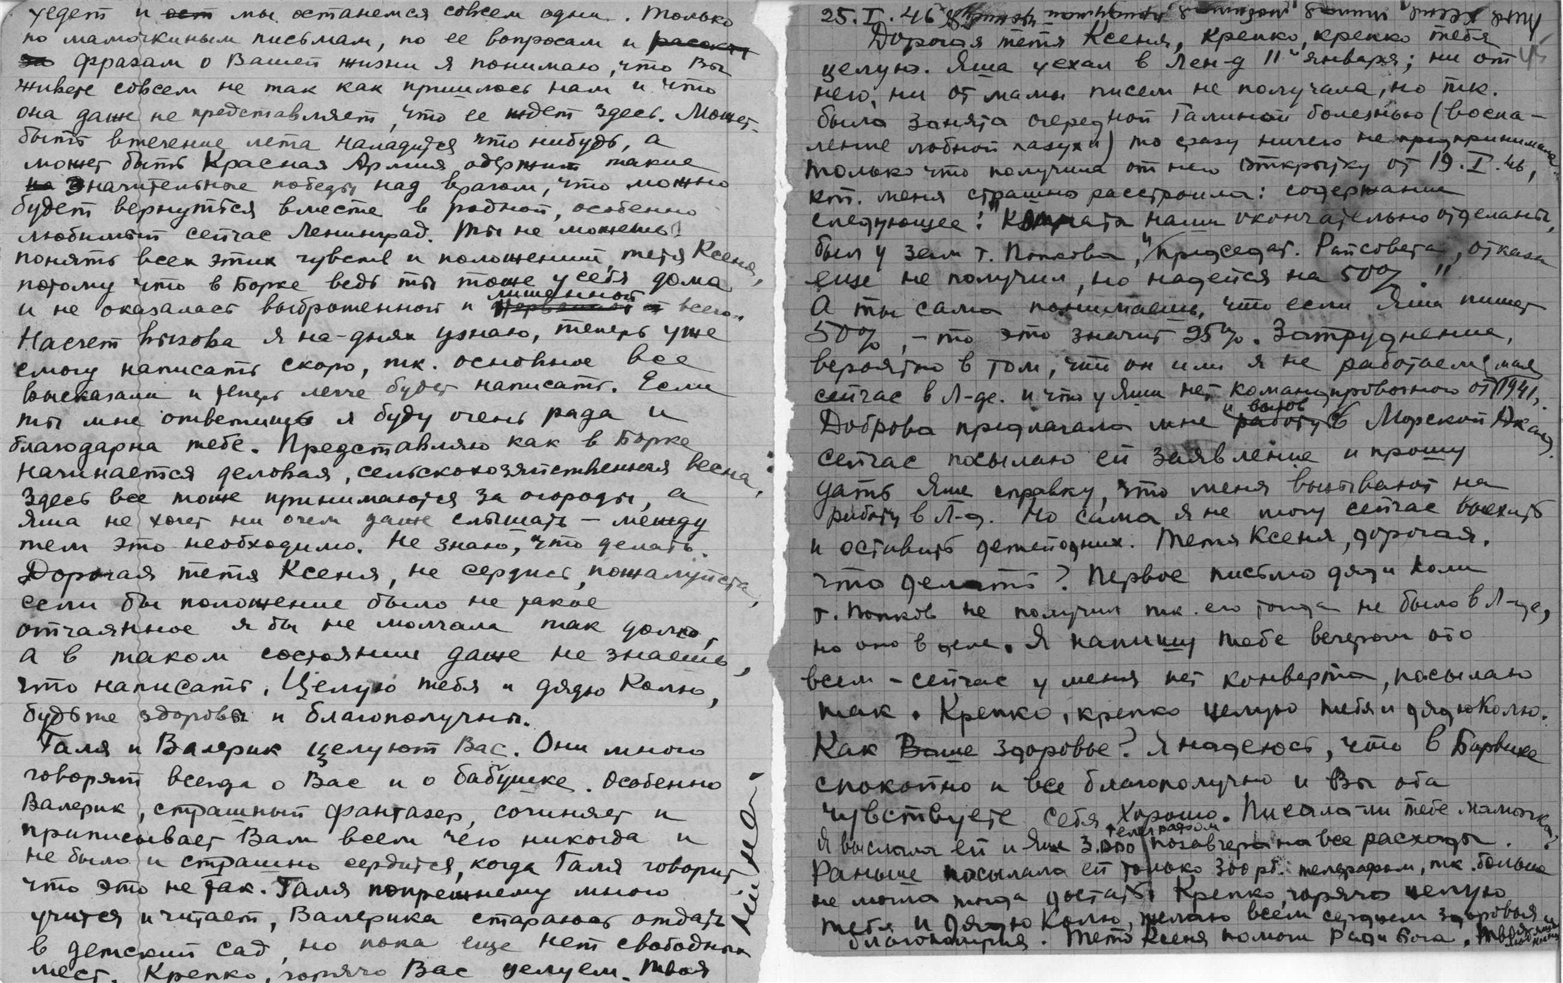 уедет и ост мы останемся совсем одни. Только
по мамочкиным письмам, по ее вопросам и
фразам о Вашей жизни я понимаю, что Вы
живете совсем не так как пришлось нам и что
она даже не представляет, что ее ждет здесь. Может
быть втечение лета наладится что нибудь, а
может быть Красная Армия одержит такие
на значительные победы над врагом, что можно
будет вернуться вместе в родной, особенно
любимый сейчас Ленинград. Ты не можешь
понять всех этих чувств и положений тетя Ксеня,
потому что в Борке ведь ты тоже у себя дома
и не оказалась выброшенной и лишенной всего.
Насчет вызова я на-днях узнаю, теперь уже
смогу написать скоро, т.к. основное все
высказали и теперь легче будет написать. Если
ты мне ответишь я буду очень рада и
благодарна тебе. Представляю как в Борке
начинается деловая, сельскохозяйственная весна,
здесь все тоже принимаются за огороды, а
Яша не хочет ни очем даже слышать — между
тем это необходимо. Не знаю, что делать.
Дорогая тетя Ксеня, не сердись, пожалуйста,
если бы положение было не такое
отчаянное я бы не молчала так долго,
а в таком состоянии даже не знаешь,
что написать. Целую тебя и дядю Колю,
будьте здоровы и благополучны.
Галя и Валерик целуют Вас. Они много
говорят всегда о Вас и о бабушке. Особенно
Валерик, страшный фантазер, сочиняет и
приписывает Вам всем чего никогда и
не было и страшно сердится, когда Галя говорит
что это не так. Галя попрежнему много
учится и читает, Валерика стараюсь отдать
в детский сад, но пока еще нет свободных
мест. Крепко, горячо Вас целуем. Твоя
Нина.
25.I.46
45
Дорогая тетя Ксеня, крепко, крепко тебя
целую. Яша уехал в Лен-д 11го января; ни от
него, ни от мамы писем не получала, но т.к.
была занята очередной Галиной болезнью (воспа-
ление лобной пазухи) то сразу ничего не предпринимала
только что получила от него открытку от 19.I.46,
кот. меня страшно расстроила: содержание
следующее: "Комната нами окончательно отделана,
был у зам т. Попкова, председат. Райсовета, отказа
еще не получил, но надеется на 50%."
А ты сама понимаешь, что если Яша пишет
50%, — то это значит 25%. Затруднение,
вероятно в том, что он или я не работаем
сейчас в Л-де. и что у Яши нет командировочного от 1941.
Доброва предлагала мне и вызов работу в Морской Акад.
сейчас посылаю ей заявление и прошу
дать Яше справку, что меня вызывают на
работу в Л-д. Но сама я не могу сейчас выехать
и оставить детей одних. Тетя Ксеня, дорогая,
что делать? Первое письмо дяди Коли
т. Попков не получил т.к. его тогда не было в Л-де,
но оно в деле. Я напишу тебе вечером обо
всем — сейчас у меня нет конверта, посылаю
так. Крепко, крепко целую тебя и дядю Колю.
Как Ваше здоровье? Я надеюсь, что в Борвихе
спокойно и все благополучно и Вы оба
чувствуете себя хорошо. Писала ли тебе мамочка?
Я выслала ей и Яше 3.000 телеграфом позавчера на все расходы.
Раньше посылала ей только 300 рб. телеграфом, т.к. больше
не могла тогда достать. Крепко, горячо целую
тебя и дядю Колю, желаю всем сердцем здоровья и
благополучия. Тетя Ксеня помоги Ради Бога. Твоя